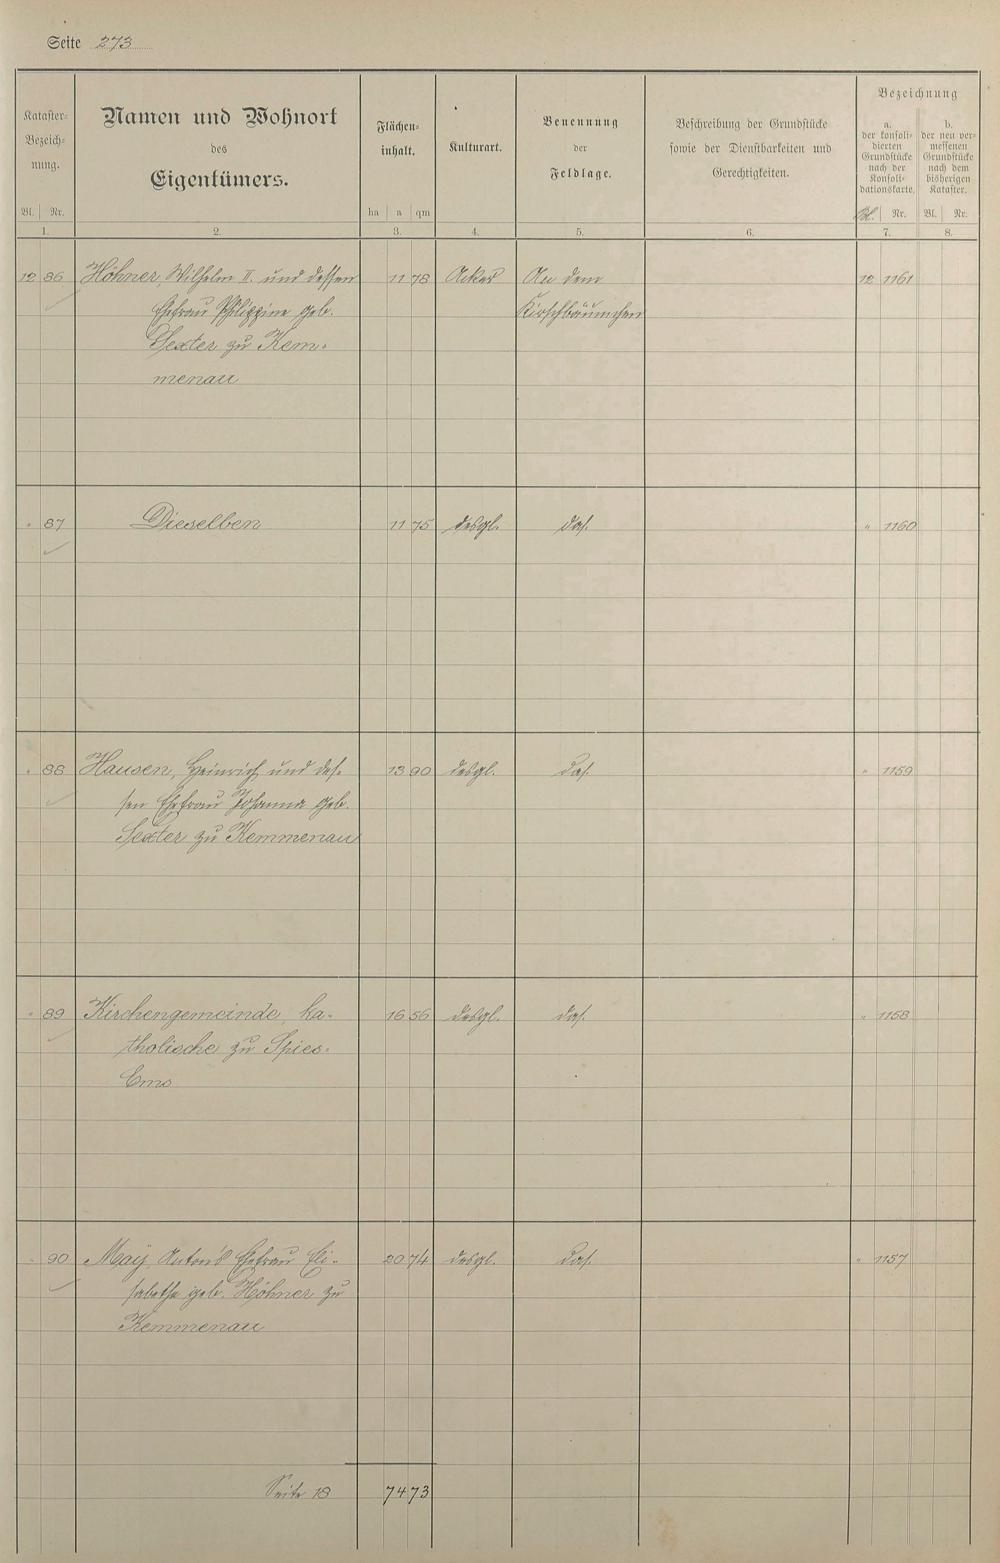 Seite 273
Kataster-
Bezeich-
nung.
Bl. Nr.
1.
Namen und Wohnort
des
Eigentümers.
2.
Flächen-
inhalt.
ha a qm
3.
Kulturart.
4.
Benennung
der
Feldlage.
5.
Beschreibung der Grundstücke
sowie der Dienstbarkeiten und
Gerechtigkeiten.
6.
Bezeichnung
a.
der konsoli-
dierten
Grundstücke
nach der
Konsoli-
dationskarte.
Bl. Nr.
7.
b.
der neu ver-
messenen
Grundstücke
nach dem
bisherigen
Kataster.
Bl. Nr.
8.
12 86 Höhner, Wilhelm II. und dessen 11 78 Acker An dem 12 1161
Ehefrau Philippine geb. Kirschbäumchen
Sexter zu Kem-
menau
" 87 Dieselben 11 75 desgl. das. " 1160
" 88 Hausen, Heinrich und des- 13 90 desgl. das. " 1159
sen Ehefrau Johanna geb.
Sexter zu Kemmenau
" 89 Kirchengemeinde, ka- 16 56 desgl. das. " 1158
tholische zu Spies-
Ems
" 90 May, Anton's Ehefrau Eli- 20 74 desgl. das. " 1157
sabetha geb. Höhner zu
Kemmenau
Seite 18 74 73